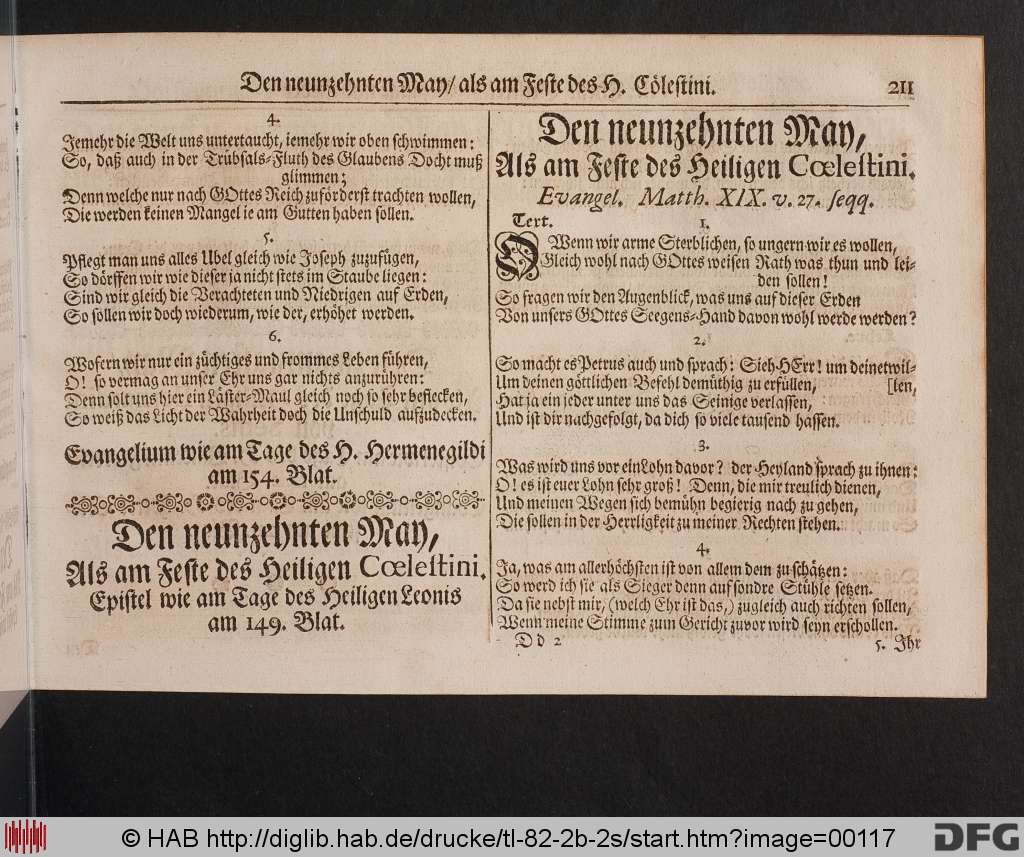 Den neunzehnten May/ als am Feste des H. Cölestini. 211
4.
Jemehr die Welt uns untertaucht, iemehr wir oben schwimmen:
So, daß auch in der Trübsals-Fluth des Glaubens Docht muß
glimmen;
Denn welche nur nach GOttes Reich zuförderst trachten wollen,
Die werden keinen Mangel ie am Gutten haben sollen.
5.
Pflegt man uns alles Ubel gleich wie Joseph zuzufügen,
So dörffen wir wie dieser ja nicht stets im Staube liegen:
Sind wir gleich die Verachteten und Niedrigen auf Erden,
So sollen wir doch wiederum, wie der, erhöhet werden.
6.
Wofern wir nur ein züchtiges und frommes Leben führen,
O! so vermag an unser Ehr uns gar nichts anzurühren:
Denn solt uns hier ein Läster-Maul gleich noch so sehr beflecken,
So weiß das Licht der Wahrheit doch die Unschuld aufzudecken.
Evangelium wie am Tage des H. Hermenegildi
am 154. Blat.
Den neunzehnten May,
Als am Feste des Heiligen Cœlestini.
Epistel wie am Tage des Heiligen Leonis
am 149. Blat.
Den neunzehnten May,
Als am Feste des Heiligen Cœlestini.
Evangel. Matth. XIX. v. 27. seqq.
Text. 1.
O Wenn wir arme Sterblichen, so ungern wir es wollen,
Gleich wohl nach GOttes weisen Rath was thun und lei-
den sollen!
So fragen wir den Augenblick, was uns auf dieser Erden
Von unsers GOttes Seegens-Hand davon wohl werde werden?
2.
So macht es Petrus auch und sprach: Sieh HErr! um deinetwil-
Um deinen göttlichen Befehl demüthig zu erfüllen, [len,
Hat ja ein jeder unter uns das Seinige verlassen,
Und ist dir nachgefolgt, da dich so viele tausend hassen.
3.
Was wird uns vor ein Lohn davor? der Heyland sprach zu ihnen:
O! es ist euer Lohn sehr groß! Denn, die mir treulich dienen,
Und meinen Wegen sich bemühn begierig nach zu gehen,
Die sollen in der Herrligkeit zu meiner Rechten stehen.
4.
Ja, was am allerhöchsten ist von allem dem zu schätzen:
So werd ich sie als Sieger denn auf sondre Stühle setzen.
Da sie nebst mir, (welch Ehr ist das,) zugleich auch richten sollen,
Wenn meine Stimme zum Gericht zuvor wird seyn erschollen.
D d 2 5. Ihr
© HAB http://diglib.hab.de/drucke/tl-82-2b-2s/start.htm?image=00117
DFG